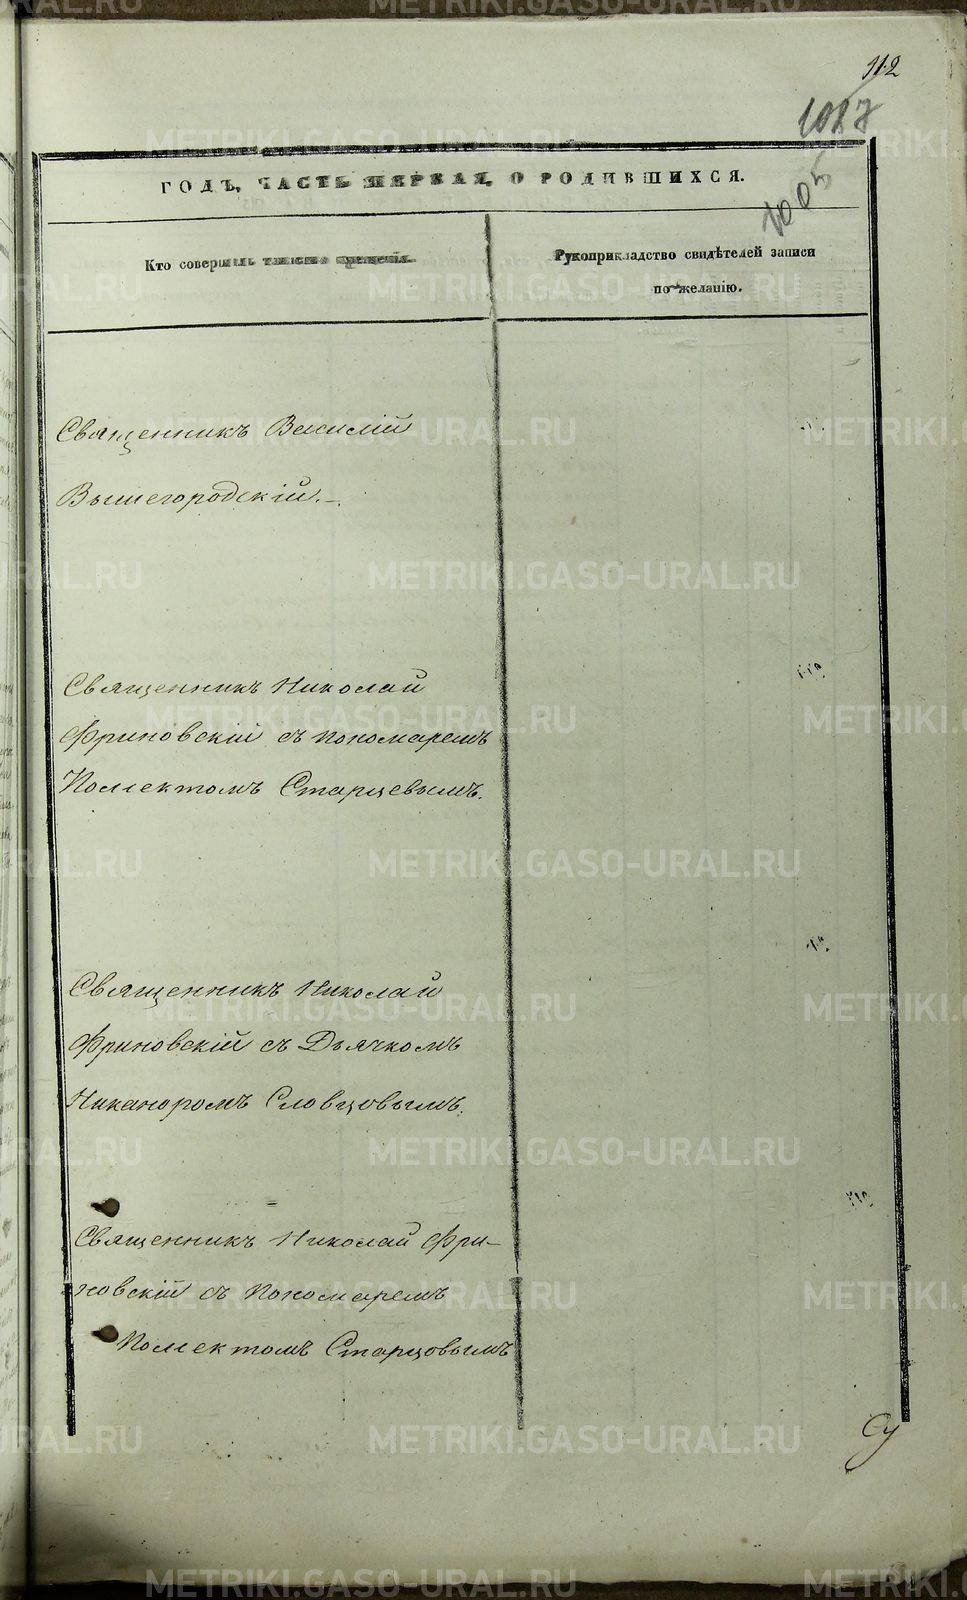 112
1087
1005
ГОДЪ, ЧАСТЬ ПЕРВАЯ, О РОДИВШИХСЯ.
Кто совершалъ таинство крещенія.
Рукоприкладство свидѣтелей записи
по желанію.
Священникъ Василій
Вышегородскій.-
Священникъ Николай
Фриновскій съ пономаремъ
Полиектомъ Старцевымъ.
Священникъ Николай
Фриновскій съ Дьячкомъ
Никаноромъ Словцовымъ.
Священникъ Николай Фри-
новскій съ Пономаремъ
Полиектомъ Старцовымъ
METRIKI.GASO-URAL.RU